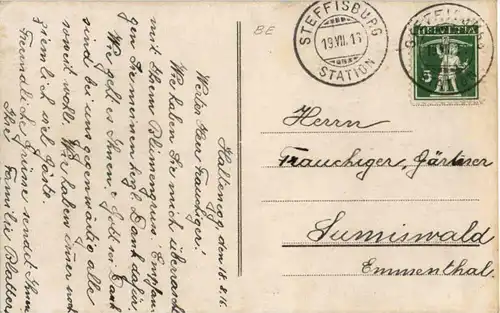 BE
STEFFISBURG
19.VII.16
STATION
HELVETIA
5
Herrn
Trauchiger, Gärtner
Sumiswald
Emmenthal.
Kaltenegg, den 18. 8. 16.
Werter Herr Trauchiger!
Wie haben Sie mich überrascht
mit Ihrem Blumengruss. Empfan
gen Sie meinen herzl. Dank dafür.
Wie geht es Ihnen, Gott sei Dank
sind bei uns gegenwärtig alle
soweit wohl. Wir haben immer noch
ziemlich viel Gäste.
Freundliche Grüsse sendet Ihnen
Familie Blatter